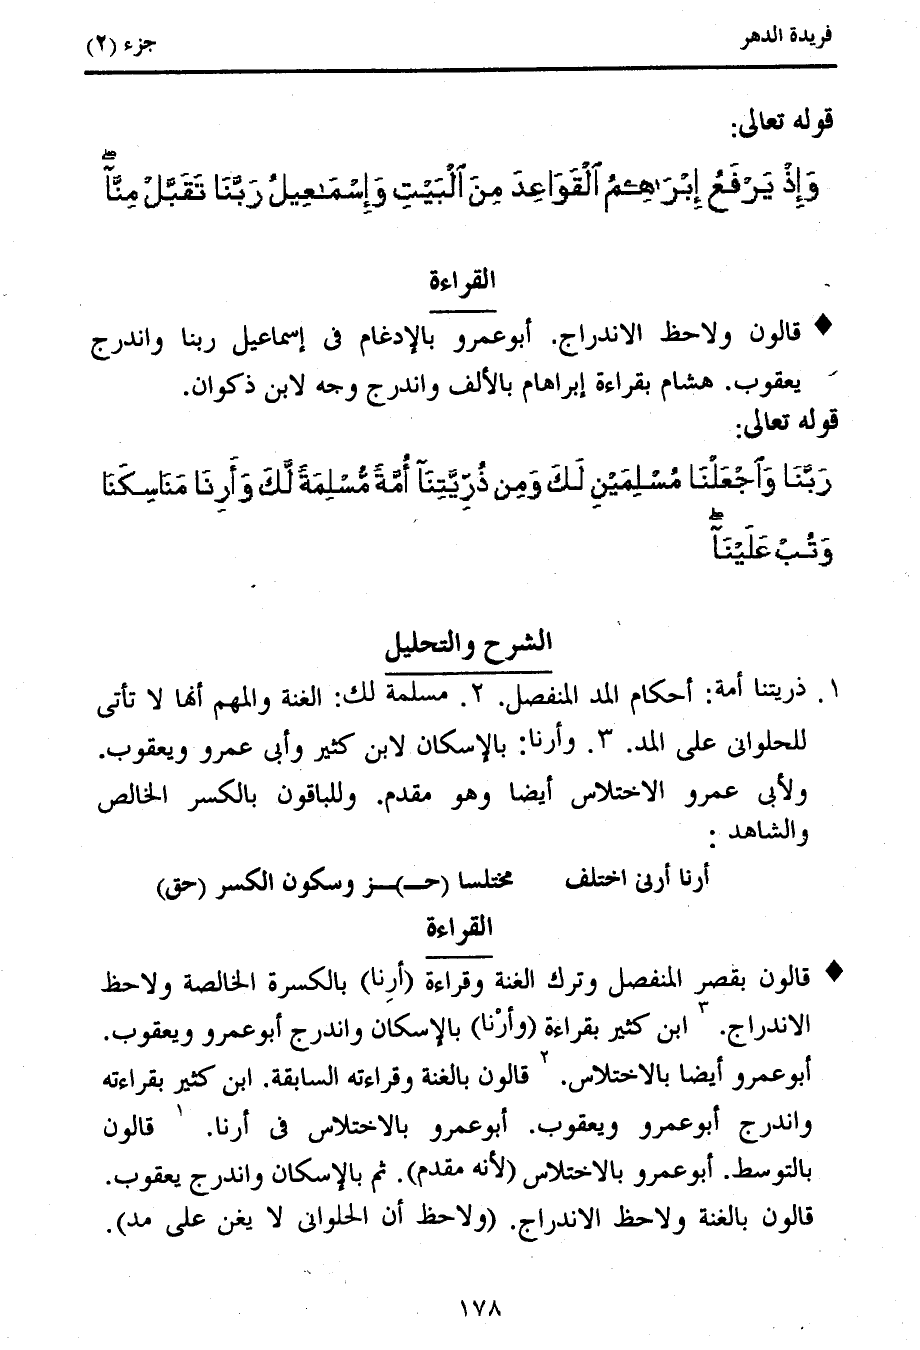 فريدة الدهر
جزء (٢)
قوله تعالى:
وَإِذْ يَرْفَعُ إِبْرَٰهِـۧمُ ٱلْقَوَاعِدَ مِنَ ٱلْبَيْتِ وَإِسْمَـٰعِيلُ رَبَّنَا تَقَبَّلْ مِنَّآ ۖ
القراءة
♦ قالون ولاحظ الاندراج. أبوعمرو بالإدغام فى إسماعيل ربنا واندرج
يعقوب. هشام بقراءة إبراهام بالألف واندرج وجه لابن ذكوان.
قوله تعالى:
رَبَّنَا وَٱجْعَلْنَا مُسْلِمَيْنِ لَكَ وَمِن ذُرِّيَّتِنَآ أُمَّةً مُّسْلِمَةً لَّكَ وَأَرِنَا مَنَاسِكَنَا
وَتُبْ عَلَيْنَآ ۖ
الشرح والتحليل
١. ذريتنا أمة: أحكام المد المنفصل. ٢. مسلمة لك: الغنة والمهم أنها لا تأتى
للحلوانى على المد. ٣. وأرنا: بالإسكان لابن كثير وأبى عمرو ويعقوب.
ولأبى عمرو الاختلاس أيضا وهو مقدم. وللباقون بالكسر الخالص
والشاهد :
أرنا أرنى اختلف مختلسا (حـ)ـز وسكون الكسر (حق)
القراءة
♦ قالون بقصر المنفصل وترك الغنة وقراءة (أرِنا) بالكسرة الخالصة ولاحظ
الاندراج. ٣ ابن كثير بقراءة (وأرْنا) بالإسكان واندرج أبوعمرو ويعقوب.
أبوعمرو أيضا بالاختلاس. ٢ قالون بالغنة وقراءته السابقة. ابن كثير بقراءته
واندرج أبوعمرو ويعقوب. أبوعمرو بالاختلاس فى أرنا. ١ قالون
بالتوسط. أبوعمرو بالاختلاس (لأنه مقدم). ثم بالإسكان واندرج يعقوب.
قالون بالغنة ولاحظ الاندراج. (ولاحظ أن الحلوانى لا يغن على مد).
١٧٨